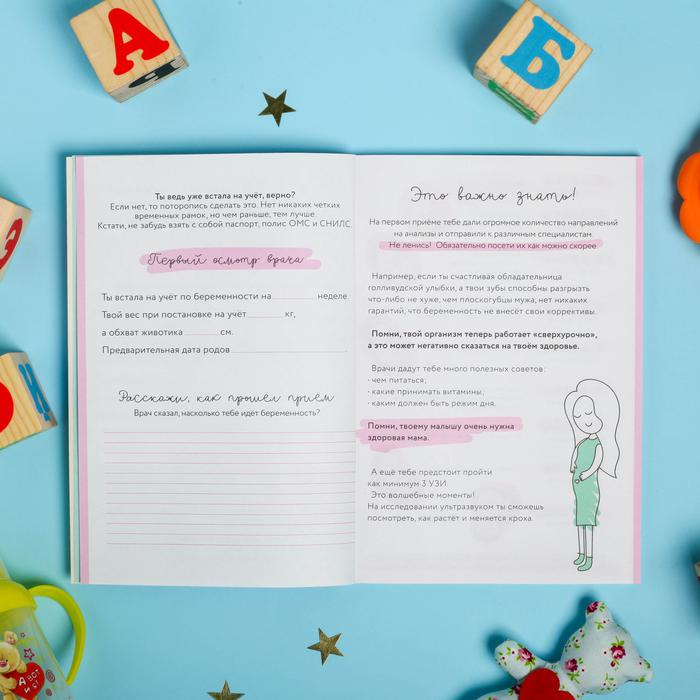 А
Б
Ты ведь уже встала на учёт, верно?
Если нет, то поторопись сделать это. Нет никаких чётких
временных рамок, но чем раньше, тем лучше.
Кстати, не забудь взять с собой паспорт, полис ОМС и СНИЛС.
Первый осмотр врача
Ты встала на учёт по беременности на неделе.
Твой вес при постановке на учёт кг,
а обхват животика см.
Предварительная дата родов .
Расскажи, как прошёл приём
Врач сказал, насколько тебе идёт беременность?
Это важно знать!
На первом приёме тебе дали огромное количество направлений
на анализы и отправили к различным специалистам.
Не ленись! Обязательно посети их как можно скорее.
Например, если ты счастливая обладательница
голливудской улыбки, а твои зубы способны разгрызть
что-либо не хуже, чем плоскогубцы мужа, нет никаких
гарантий, что беременность не внесёт свои коррективы.
Помни, твой организм теперь работает «сверхурочно»,
а это может негативно сказаться на твоём здоровье.
Врачи дадут тебе много полезных советов:
· чем питаться;
· какие принимать витамины;
· каким должен быть режим дня.
Помни, твоему малышу очень нужна
здоровая мама.
А ещё тебе предстоит пройти
как минимум 3 УЗИ.
Это волшебные моменты!
На исследовании ультразвуком ты сможешь
посмотреть, как растёт и меняется кроха.
А ВОТ
И Я!